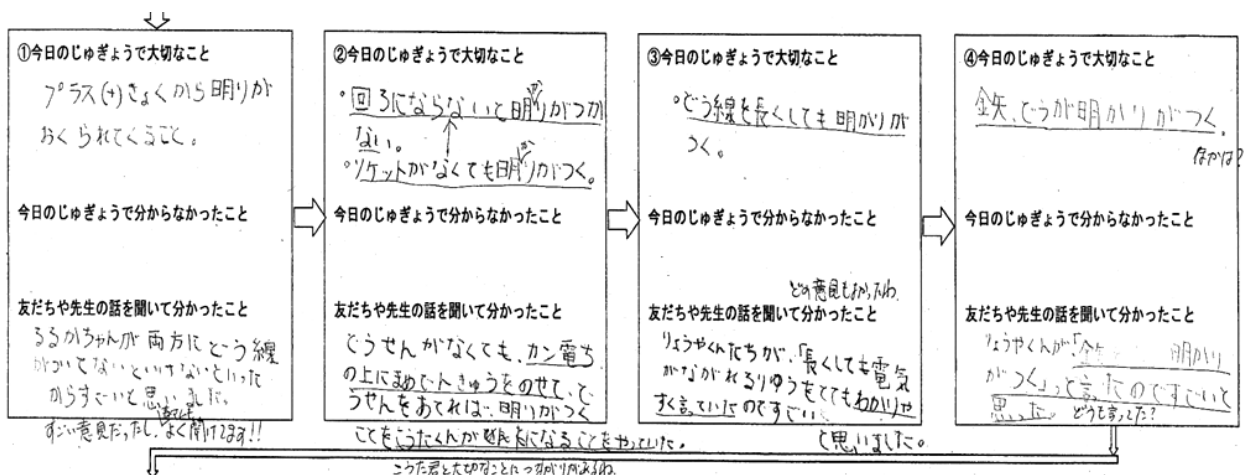 ①今日のじゅぎょうで大切なこと
プラス(+)きょくから明りが
おくられてくること。
今日のじゅぎょうで分からなかったこと
友だちや先生の話を聞いて分かったこと
るるかちゃんが両方にどう線
がついてないといけないといった
からすごいと思いました。
すごい意見だったし、よく聞けてます!!
②今日のじゅぎょうで大切なこと
・回ろにならないと明りがつか
ない。
・ソケットがなくても明りがつく。
今日のじゅぎょうで分からなかったこと
友だちや先生の話を聞いて分かったこと
どうせんがなくても、カン電ち
の上にまめでんきゅうをのせて、ど
うせんをあてれば、明りがつく
ことをこうたくんが
になることをやっていた。
こうた君と大切なことにつながりがあるね。
③今日のじゅぎょうで大切なこと
・どう線を長くしても明がりが
つく。
今日のじゅぎょうで分からなかったこと
どの意見もよかったね
友だちや先生の話を聞いて分かったこと
りょうやくんたちが、「長くしても電気
がながれるりゆうをとてもわかりや
すく言っていたのですごい
と思いました。
④今日のじゅぎょうで大切なこと
金矢、どうが明かりがつく。
ほかは?
今日のじゅぎょうで分からなかったこと
友だちや先生の話を聞いて分かったこと
りょうやくんが、「 明かり
がつく」って言ったのですごいと
思った。
どうも言った?